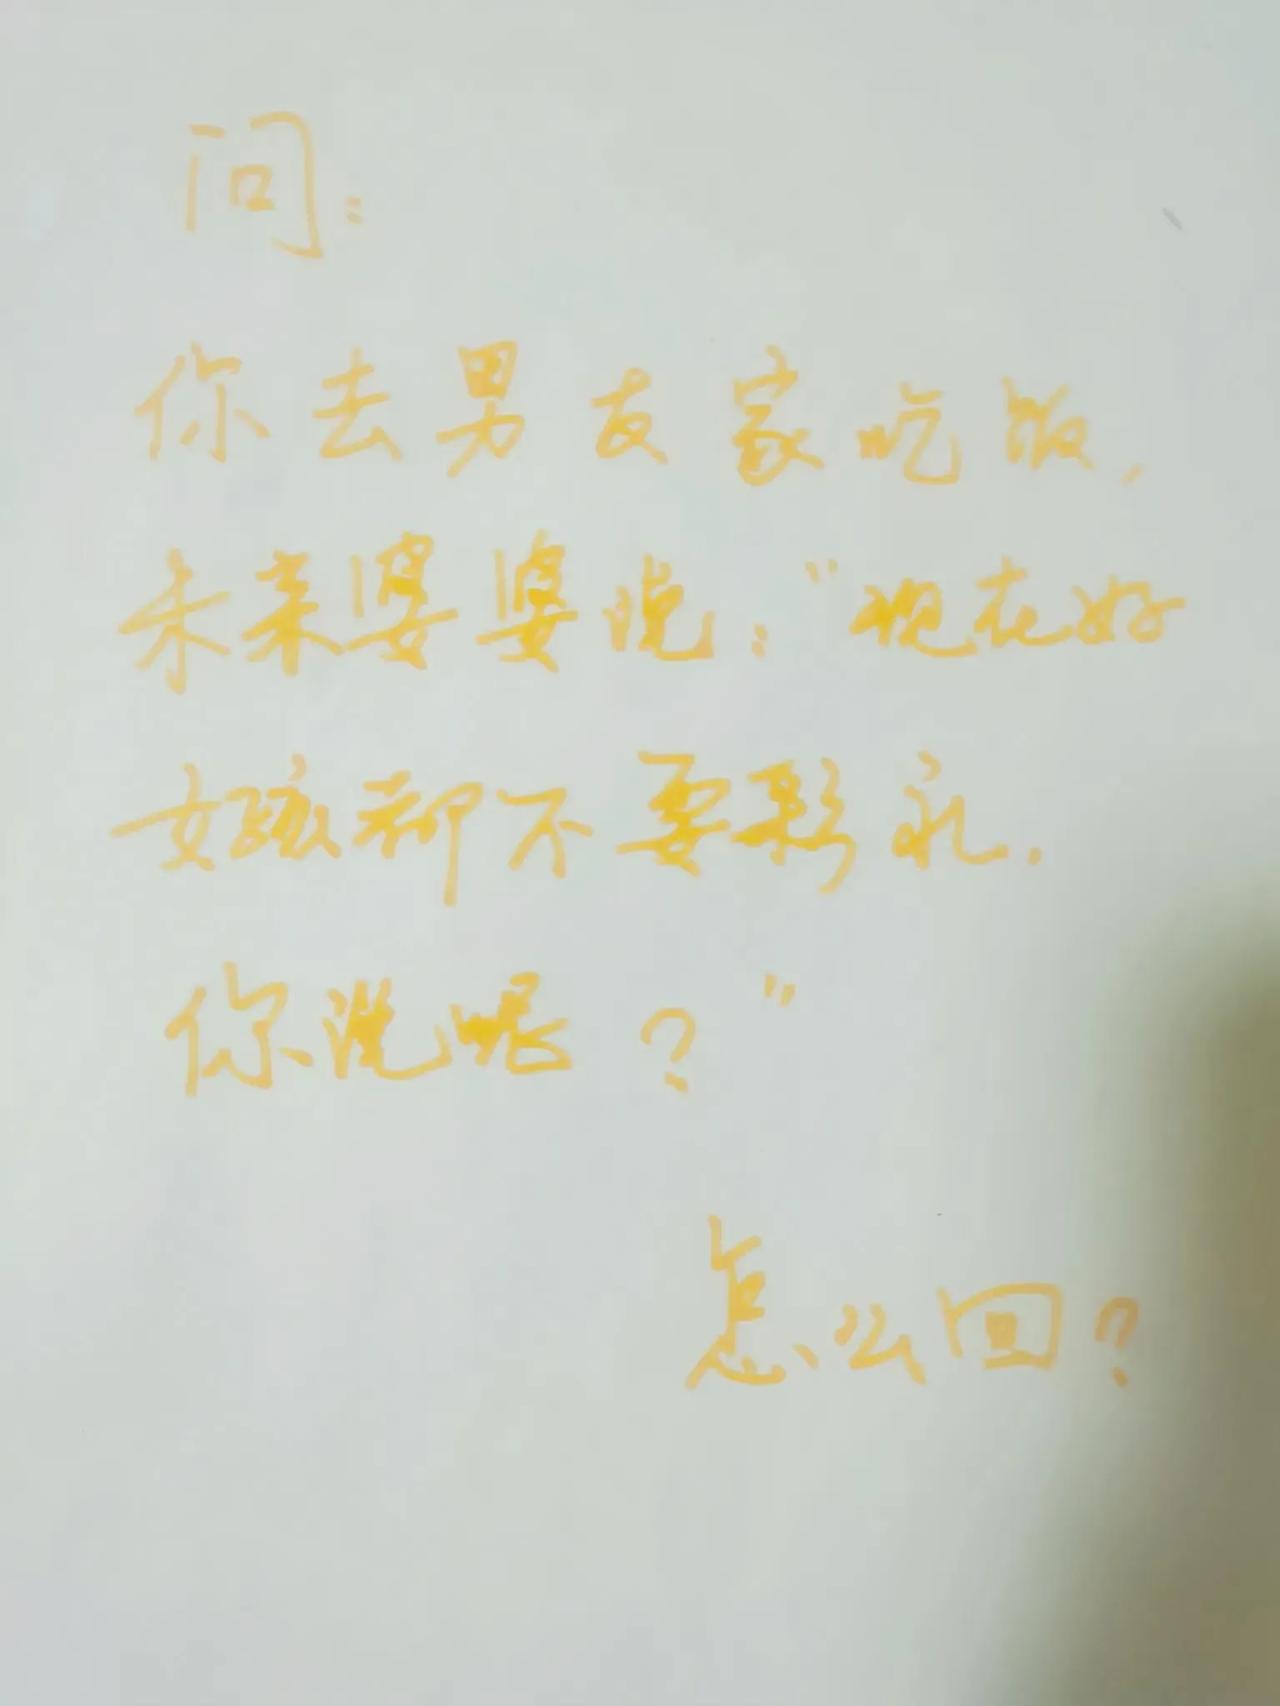 问：
你去男友家吃饭，
未来婆婆说：“现在好
女孩都不要彩礼.
你说呢？”
怎么回？